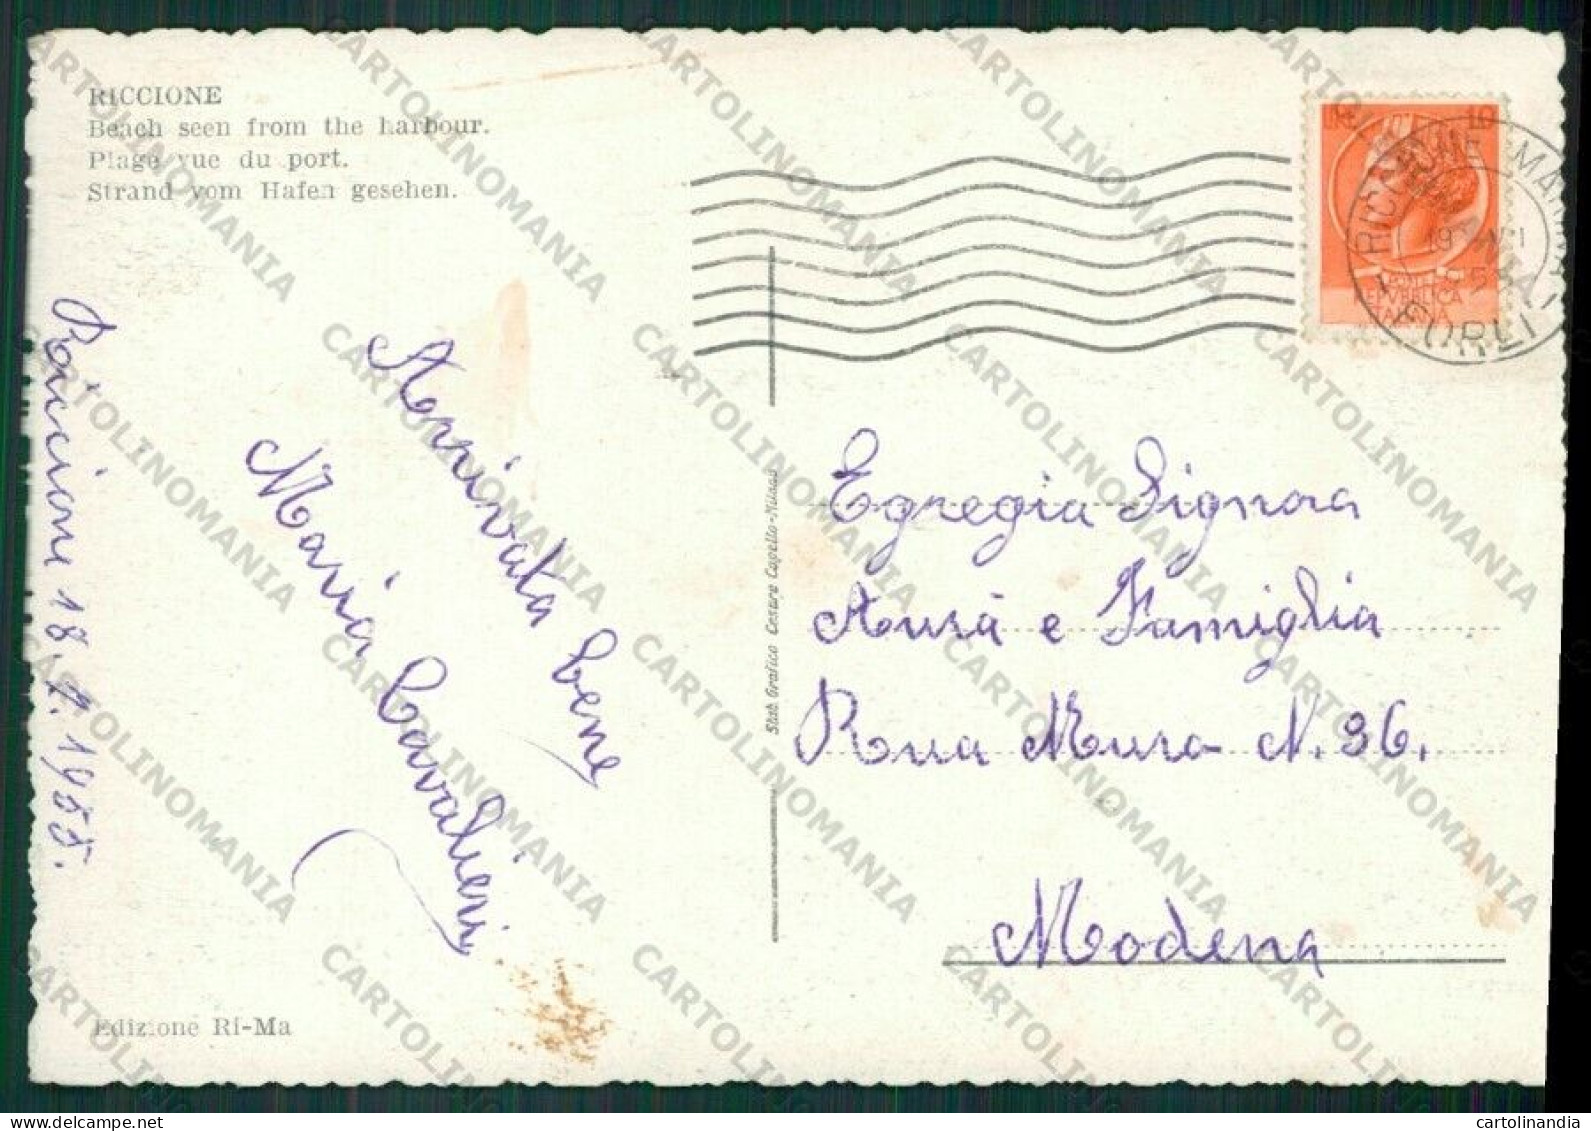 RICCIONE
Beach seen from the harbour.
Plage vue du port.
Strand vom Hafen gesehen.
Riccioni 18. 7. 1955.
Arrivata bene
Maria Cavalieri
Edizione Ri-Ma
Stab. Grafico Cesare Capello-Milano
10
REPVBBLICA
ITALIANA
FORLI
Egregia Signora
Aurá e Famiglia
Rua Muro N. 36.
Modena
CARTOLINOMANIA
cartolinandia